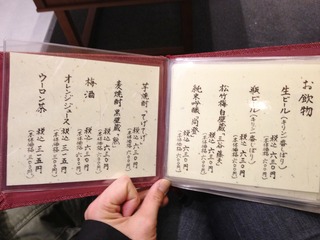 お飲物
生ビール(キリン一番しぼり)
税込 六三〇円
(本体価格 六〇〇円)
瓶ビール(キリン一番しぼり)
税込 六三〇円
(本体価格 六〇〇円)
松竹梅白壁蔵「三谷藤夫」
税込 六三〇円
(本体価格 六〇〇円)
純米吟醸
税込 六三〇円
(本体価格 六〇〇円)
芋焼酎
税込 六三〇円
(本体価格 六〇〇円)
麦焼酎
税込 六三〇円
(本体価格 六〇〇円)
梅酒
税込 六三〇円
(本体価格 六〇〇円)
オレンジジュース
税込 三一五円
(本体価格 三〇〇円)
ウーロン茶
税込 三一五円
(本体価格 三〇〇円)